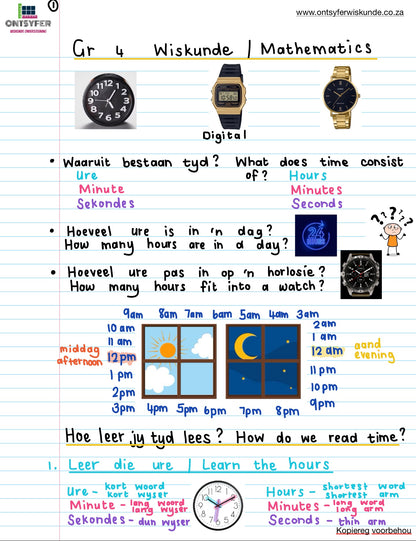 ①
ONTSYFER
www.ontsyferwiskunde.co.za
Gr 4 Wiskunde / Mathematics
Digital
• Waaruit bestaan tyd? What does time consist of?
Ure Hours
Minute Minutes
Sekondes Seconds
• Hoeveel ure is in 'n dag?
How many hours are in a day?
24
HOURS
????
• Hoeveel ure pas in op 'n horlosie?
How many hours fit into a watch?
9am 8am 7am 6am 5am 4am 3am
10 am 2am
11 am 1 am
middag
afternoon
12pm 12 am
aand
evening
1 pm 11 pm
2pm 10 pm
3pm 4pm 5pm 6pm 7pm 8pm 9pm
Hoe leer jy tyd lees? How do we read time?
1. Leer die ure / Learn the hours
Ure - kort woord
kort wyser
Minute - lang woord
lang wyser
Sekondes - dun wyser
Hours - shortest word
shortest arm
Minutes - long word
long arm
Seconds - thin arm
Kopiereg voorbehou